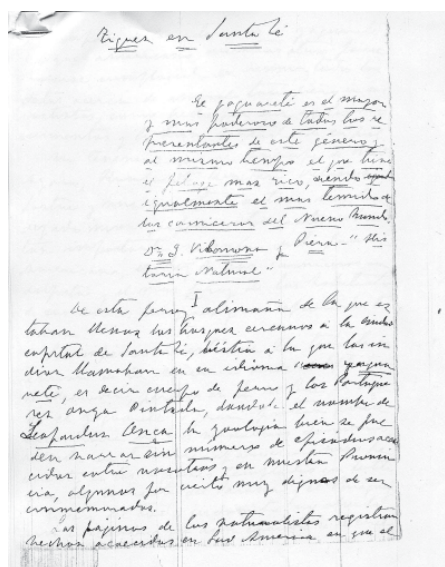 Tigres en Santa Fé
El yaguareté es el mayor
y mas poderoso de todos los re
presentantes de este género y
al mismo tiempo el que tiene
el pelage mas rico, siendo
igualmente el mas temido de
los carniceros del Nuevo Mundo.
Dr. J. Vilanova y Piera - "His
toria Natural"
I
De esta feroz alimaña de la que es
taban llenos los bosques cercanos á la
capital de Santa Fé, béstia á la que los in
dios llamaban en su idioma yagua
reté, es decir cuerpo de perro y los Portugue
ses onza pintada, dandole el nombre de
Leopardus Onca la zoologia bien se pue
den narrar sin numero de episodios acae
cidos entre nosotros y en nuestra Provin
cia, algunos por cierto muy dignos de ser
conmemorados.
Las páginas de los naturalistas registran
hechos acaecidos en Sud America en que el